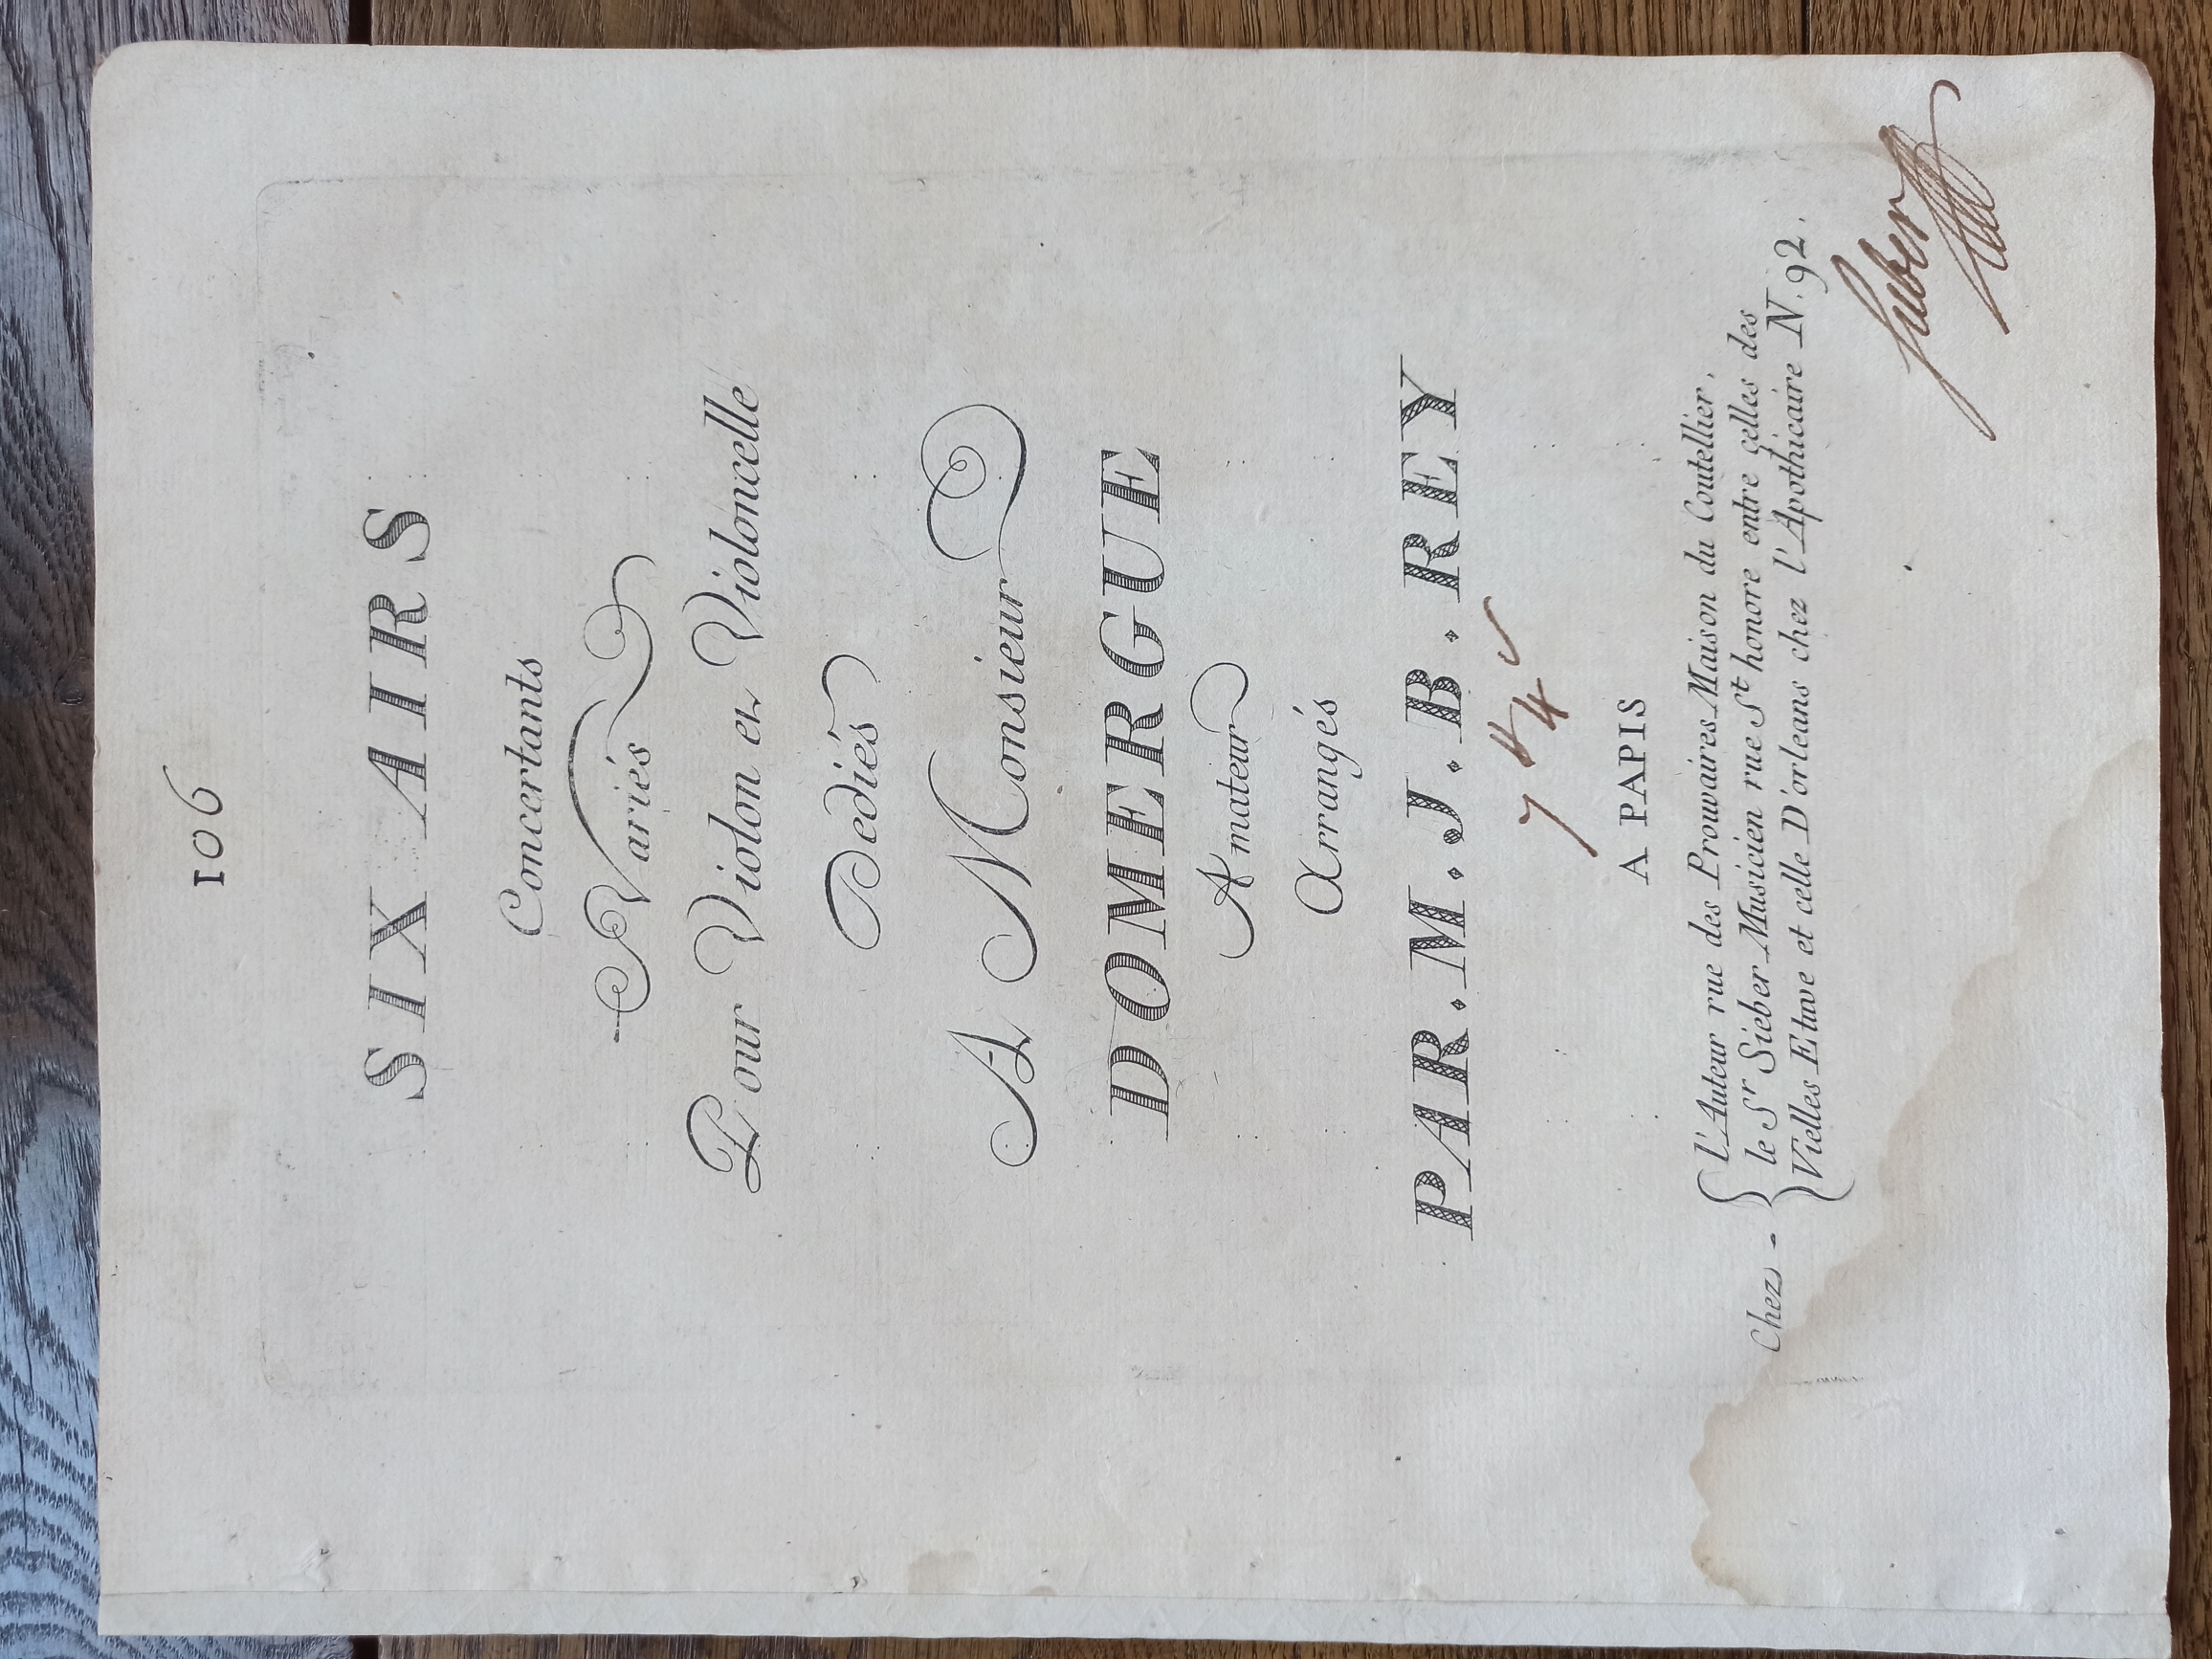 106
SIX AIRS
Concertants
Variés
Pour Violon et Violoncelle
Dediés
A Monsieur
DOMERGUE
Amateur
Arrangés
PAR.M.J.B.REY
7 ₶ 4 ſ
A PAPIS
Chez - { L'Auteur rue des Prouvaires Maison du Coutellier,
le Sr Sieber Musicien rue St honore entre celles des
Vielles Etuve et celle D'orleans chez l'Apothicaire N. 92.
Sieber